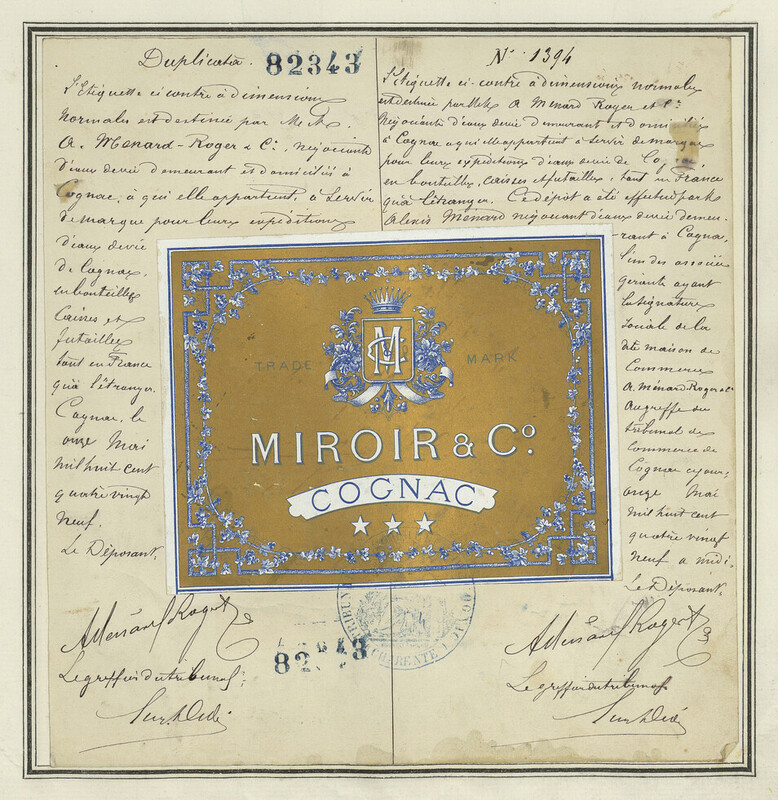 Duplicata. 82343
L'Etiquette ci contre à dimensions
normales est destinée par M.M.
A. Menard-Roger & Cie, négociants
d'eaux de vie demeurant et domiciliés à
Cognac, à qui elle appartient, à servir
de marque pour leurs expéditions
d'eaux de vie
de Cognac,
en bouteilles
caisses et
futailles
tant en France
qu'à l'étranger.
Cognac, le
onze Mai
mil huit cent
quatre vingt
neuf.
Le Déposant,
A Menard Roger &
Le greffier du tribunal,
No 1394
L'Etiquette ci-contre à dimensions normales
est destinée par MM. A Menard Roger et Cie
Négociants d'eaux de vie demeurant et domiciliés
à Cognac a qui elle appartient à servir de marque
pour leurs expéditions d'eaux de vie de
en bouteilles, caisses et futailles, tant en France
qu'à l'étranger. Ce dépôt a été effectué par M.
Alexis Menard négociant d'eaux de vie demeu-
rant à Cognac,
l'un des associés
gérants ayant
la signature
sociale de la
dite maison de
Commerce
A. Ménard-Roger & Cie
au greffe du
tribunal de
Commerce de
Cognac ce jour,
onze Mai
mil huit cent
quatre vingt
neuf a midi.
Le Déposant,
A Menard Roger &
Le greffier du tribunal
TRADE MARK
MC
MIROIR & Co.
COGNAC
TRIBUNAL
COGNAC
CHARENTE